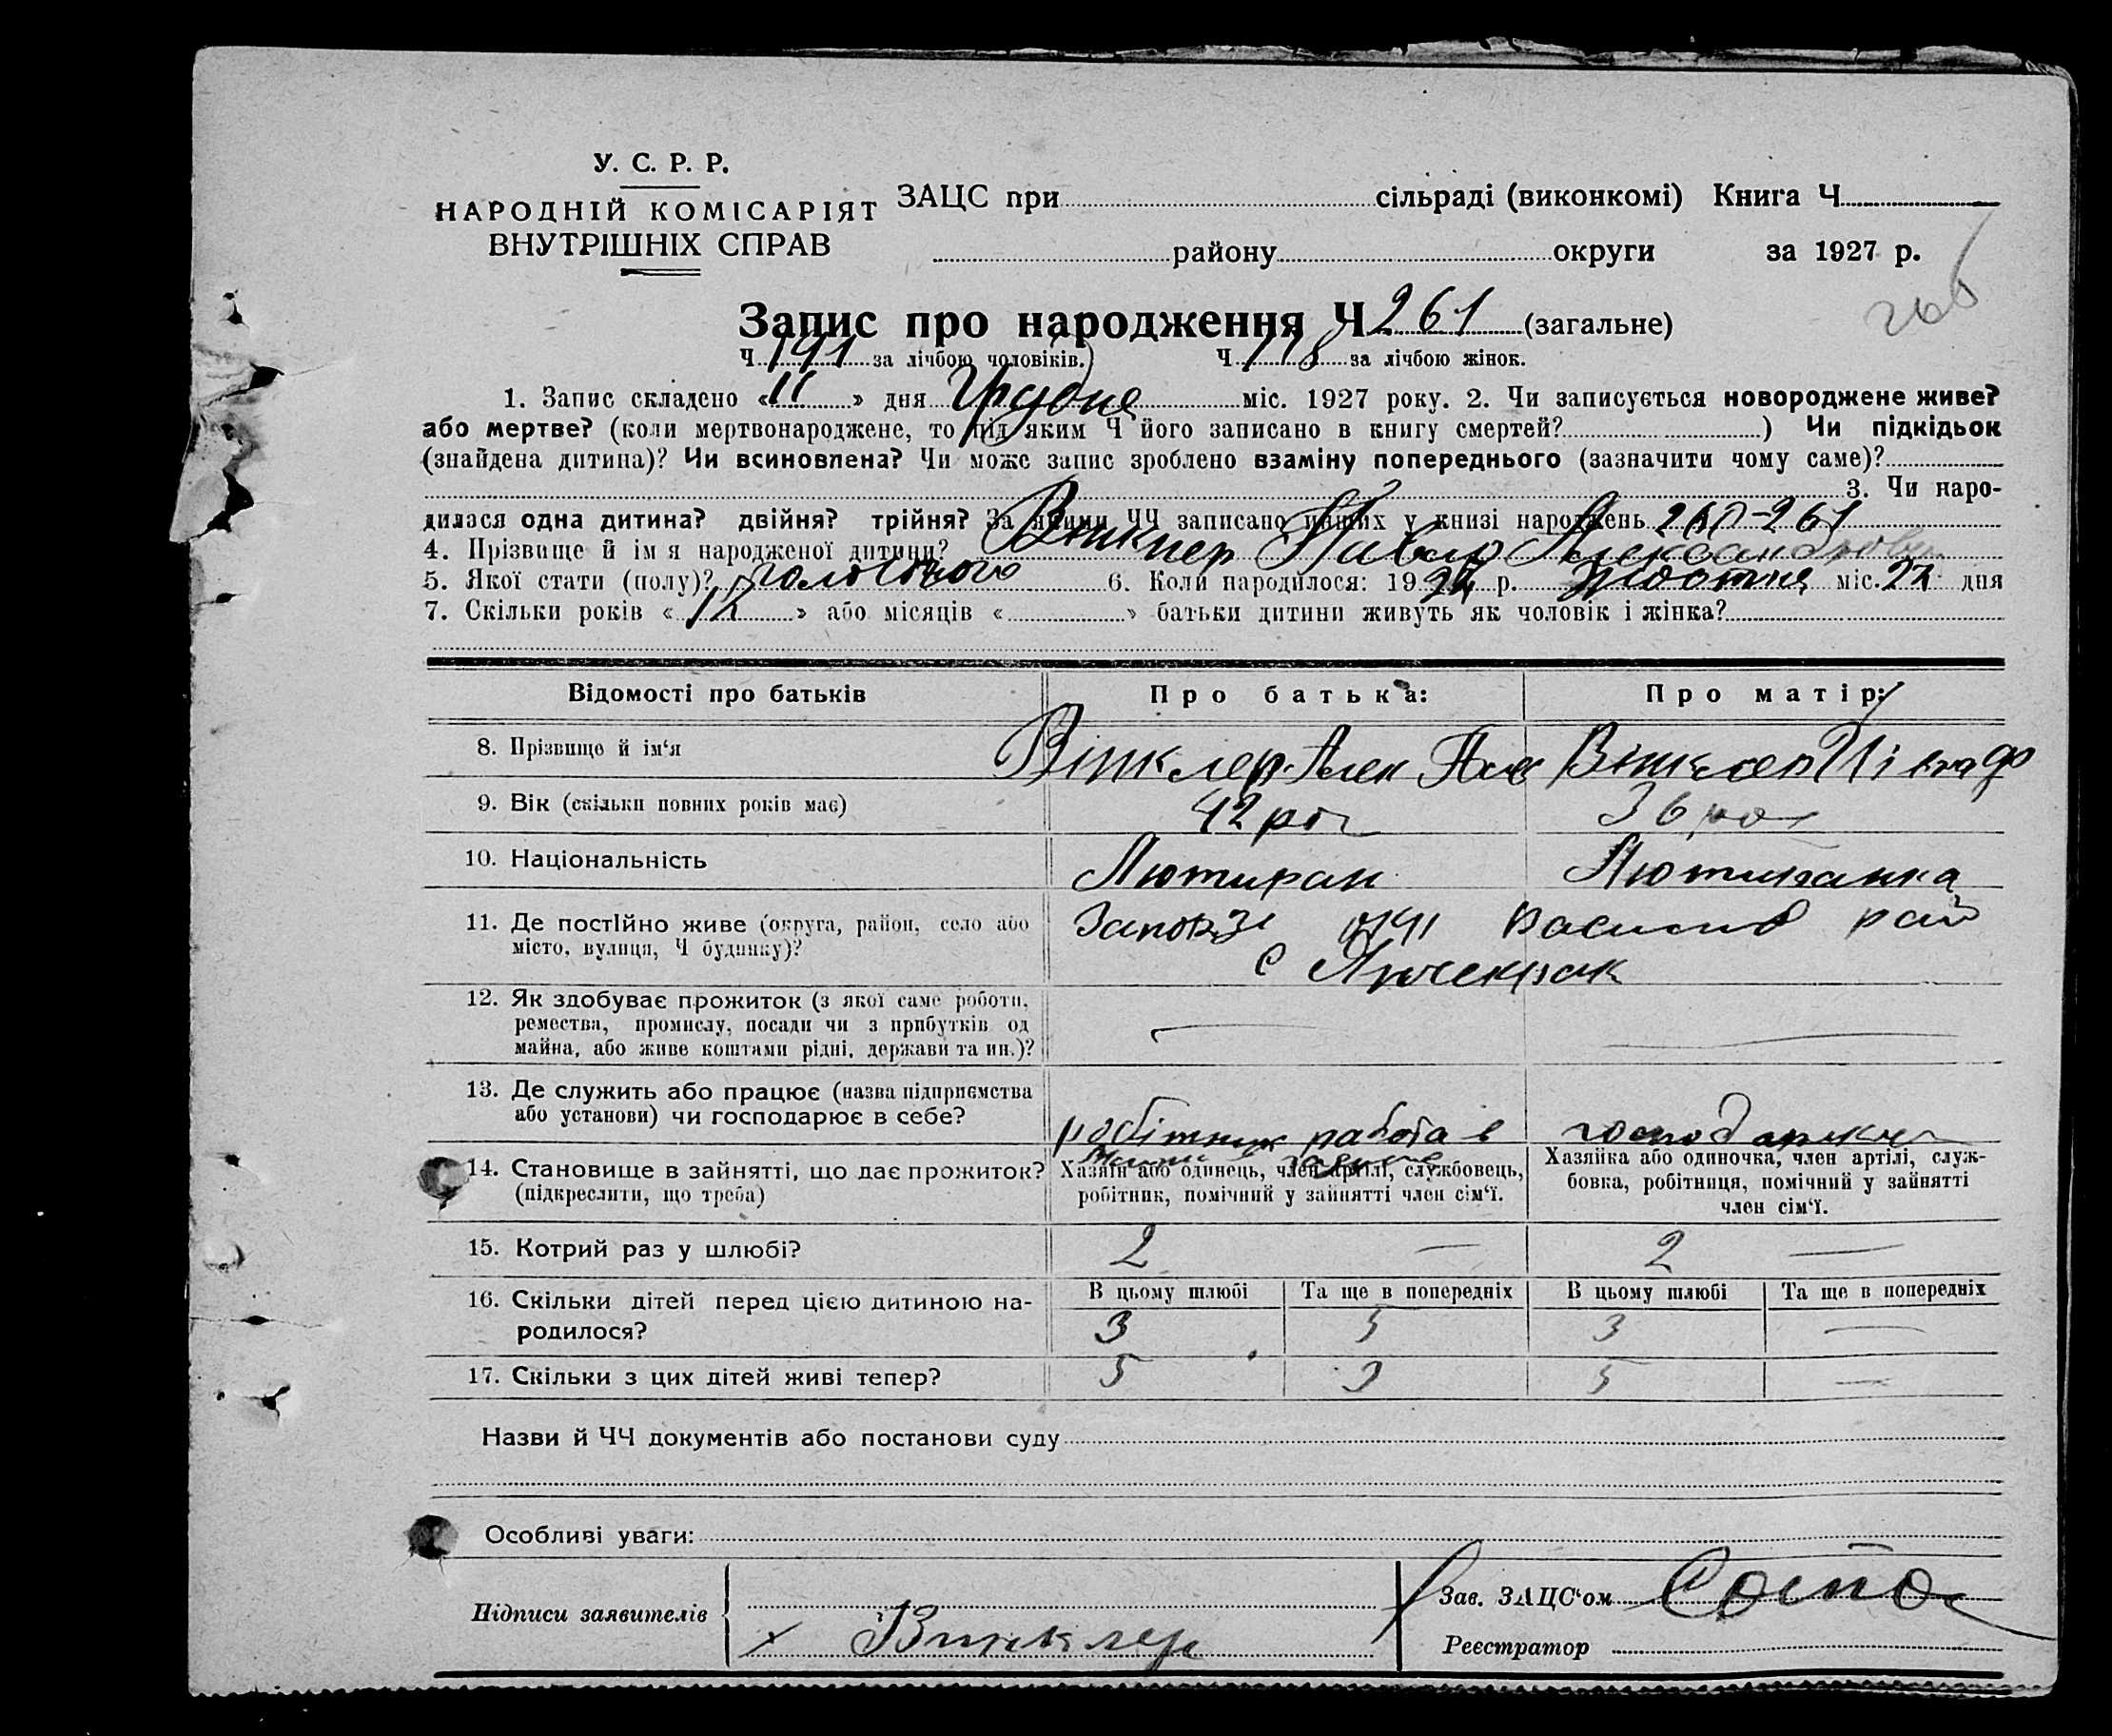 У. С. Р. Р.
НАРОДНІЙ КОМІСАРІЯТ
ВНУТРІШНІХ СПРАВ
ЗАЦС при сільраді (виконкомі) Книга Ч.
району округи за 1927 р.
266
Запис про народження Ч 261 (загальне)
Ч 141 за лічбою чоловіків. Ч 118 за лічбою жінок.
1. Запис складено «11» дня Грудня міс. 1927 року. 2. Чи записується новороджене живе?
або мертве? (коли мертвонароджене, то під яким Ч його записано в книгу смертей? ) Чи підкідьок
(знайдена дитина)? Чи всиновлена? Чи може запис зроблено взаміну попереднього (зазначити чому саме)?
3. Чи наро-
дилася одна дитина? двійня? трійня? За якими ЧЧ записано инших у книзі народжень 260-261
4. Прізвище й ім я народженої дитини? Вінклер Павло Александрович
5. Якої стати (полу)? 6. Коли народилося: 19 р. Жовтня міс. дня
7. Скільки років « 12 » або місяців « » батьки дитини живуть як чоловік і жінка?
Відомості про батьків
Про батька:
Про матір:
8. Прізвище й ім‘я
Вінклер Алек Пав
Вінклер
9. Вік (скільки повних років має)
42 рок
36 рок
10. Національність
Лютиран
Лютиранка
11. Де постійно живе (округа, район, село або
місто, вулиця, Ч будинку)?
Запорізь Василів рай
с
12. Як здобуває прожиток (з якої саме роботи,
ремества, промислу, посади чи з прибутків од
майна, або живе коштами рідні, держави та ин.)?
13. Де служить або працює (назва підприємства
або установи) чи господарює в себе?
робітник работа в
господарка
14. Становище в зайнятті, що дає прожиток?
(підкреслити, що треба)
Хазяїн або одинець, член артілі, службовець,
робітник, помічний у зайнятті член сім‘ї.
Хазяйка або одиночка, член артілі, служ-
бовка, робітниця, помічний у зайнятті
член сім‘ї.
15. Котрий раз у шлюбі?
2 —
2 —
16. Скільки дітей перед цією дитиною на-
родилося?
В цьому шлюбі Та ще в попередніх В цьому шлюбі Та ще в попередніх
3 5 3 —
17. Скільки з цих дітей живі тепер?
5 3 5 —
Назви й ЧЧ документів або постанови суду
Особливі уваги:
Підписи заявителів
Винклер
Зав. ЗАЦС‘ом
Реєстратор